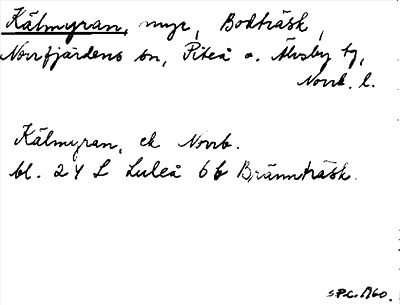 Kälmyran, myr, Bodträsk,
Norrfjärdens sn, Piteå o. Älvsby tg,
Norrb. l.
Kälmyran, ek Norrb.
bl. 24 L Luleå 6b Brännträsk.
SPC. 1960.